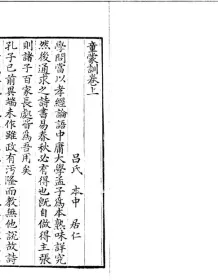 童蒙訓卷上
呂氏 本中 居仁
學問當以孝經論語中庸大學孟子爲本熟味詳究
然後通求之詩書易春秋必有得也旣自做得主張
則諸子百家長處皆爲吾用矣
孔子已前異端未作雖政有汚隆而教無他說故詩